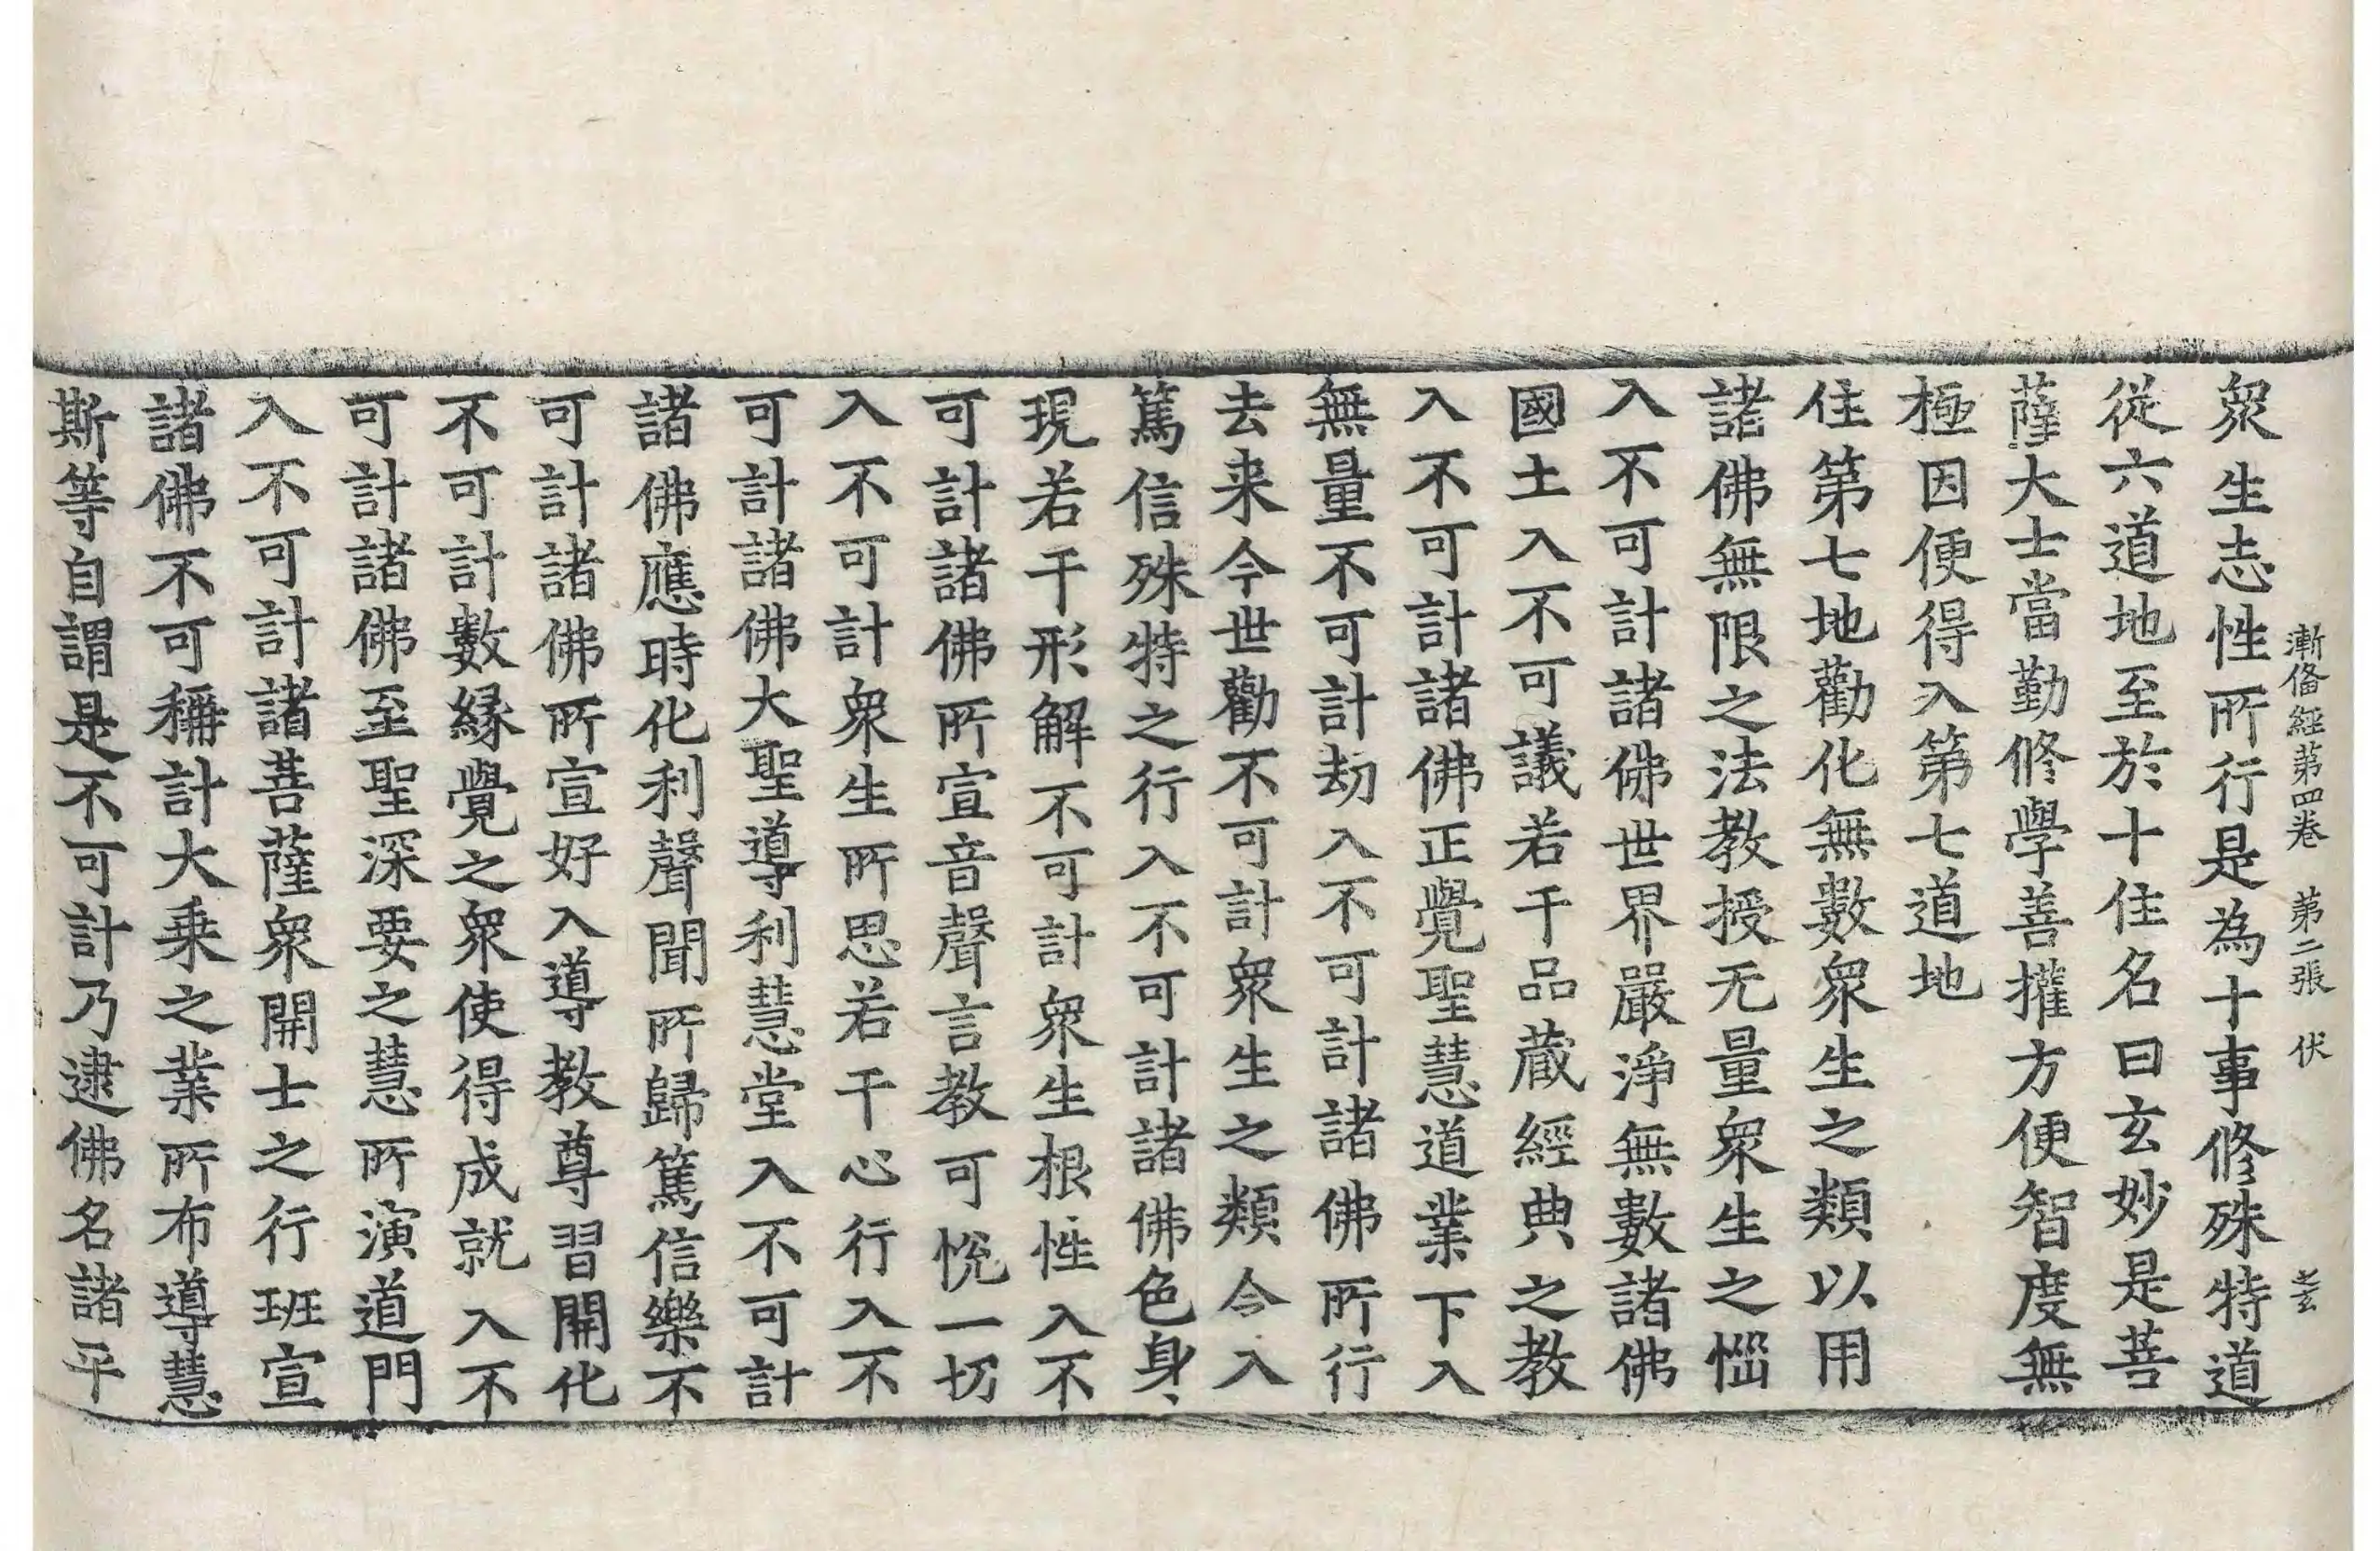 漸俻經苐四卷　苐二張　伏
衆生志性所行是為十事修殊特道
從六道地至於十住名曰玄妙是菩
薩大士當勤修學善攉方便智度無
極因便得入第七道地
住第七地勸化無數衆生之類以用
諸佛無限之法教授无量衆生之惱
入不可計諸佛世界嚴淨無數諸佛
國土入不可議若干品藏經典之教
入不可計諸佛正覺聖慧道業下入
無量不可計劫入不可計諸佛所行
去来今世勸不可計衆生之類令入
篤信殊特之行入不可計諸佛色身、
現若干形解不可計衆生根性入不
可計諸佛所宣音聲言教可悅一切
入不可計衆生所思若干心行入不
可計諸佛大聖導利慧堂入不可計
諸佛應時化利聲聞所歸篤信樂不
可計諸佛所宣好入導教尊習開化
不可計數縁覺之衆使得成就入不
可計諸佛至聖深要之慧所演道門
入不可計諸菩薩衆開士之行班宣
諸佛不可稱計大乗之業所布導慧
斯等自謂是不可計乃逮佛名諸平